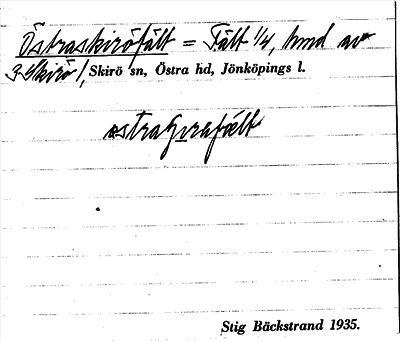 Östraskiröfält = Fält 1/4, hmd av
3 Skirö /, Skirö sn, Östra hd, Jönköpings l.
Stig Bäckstrand 1935.